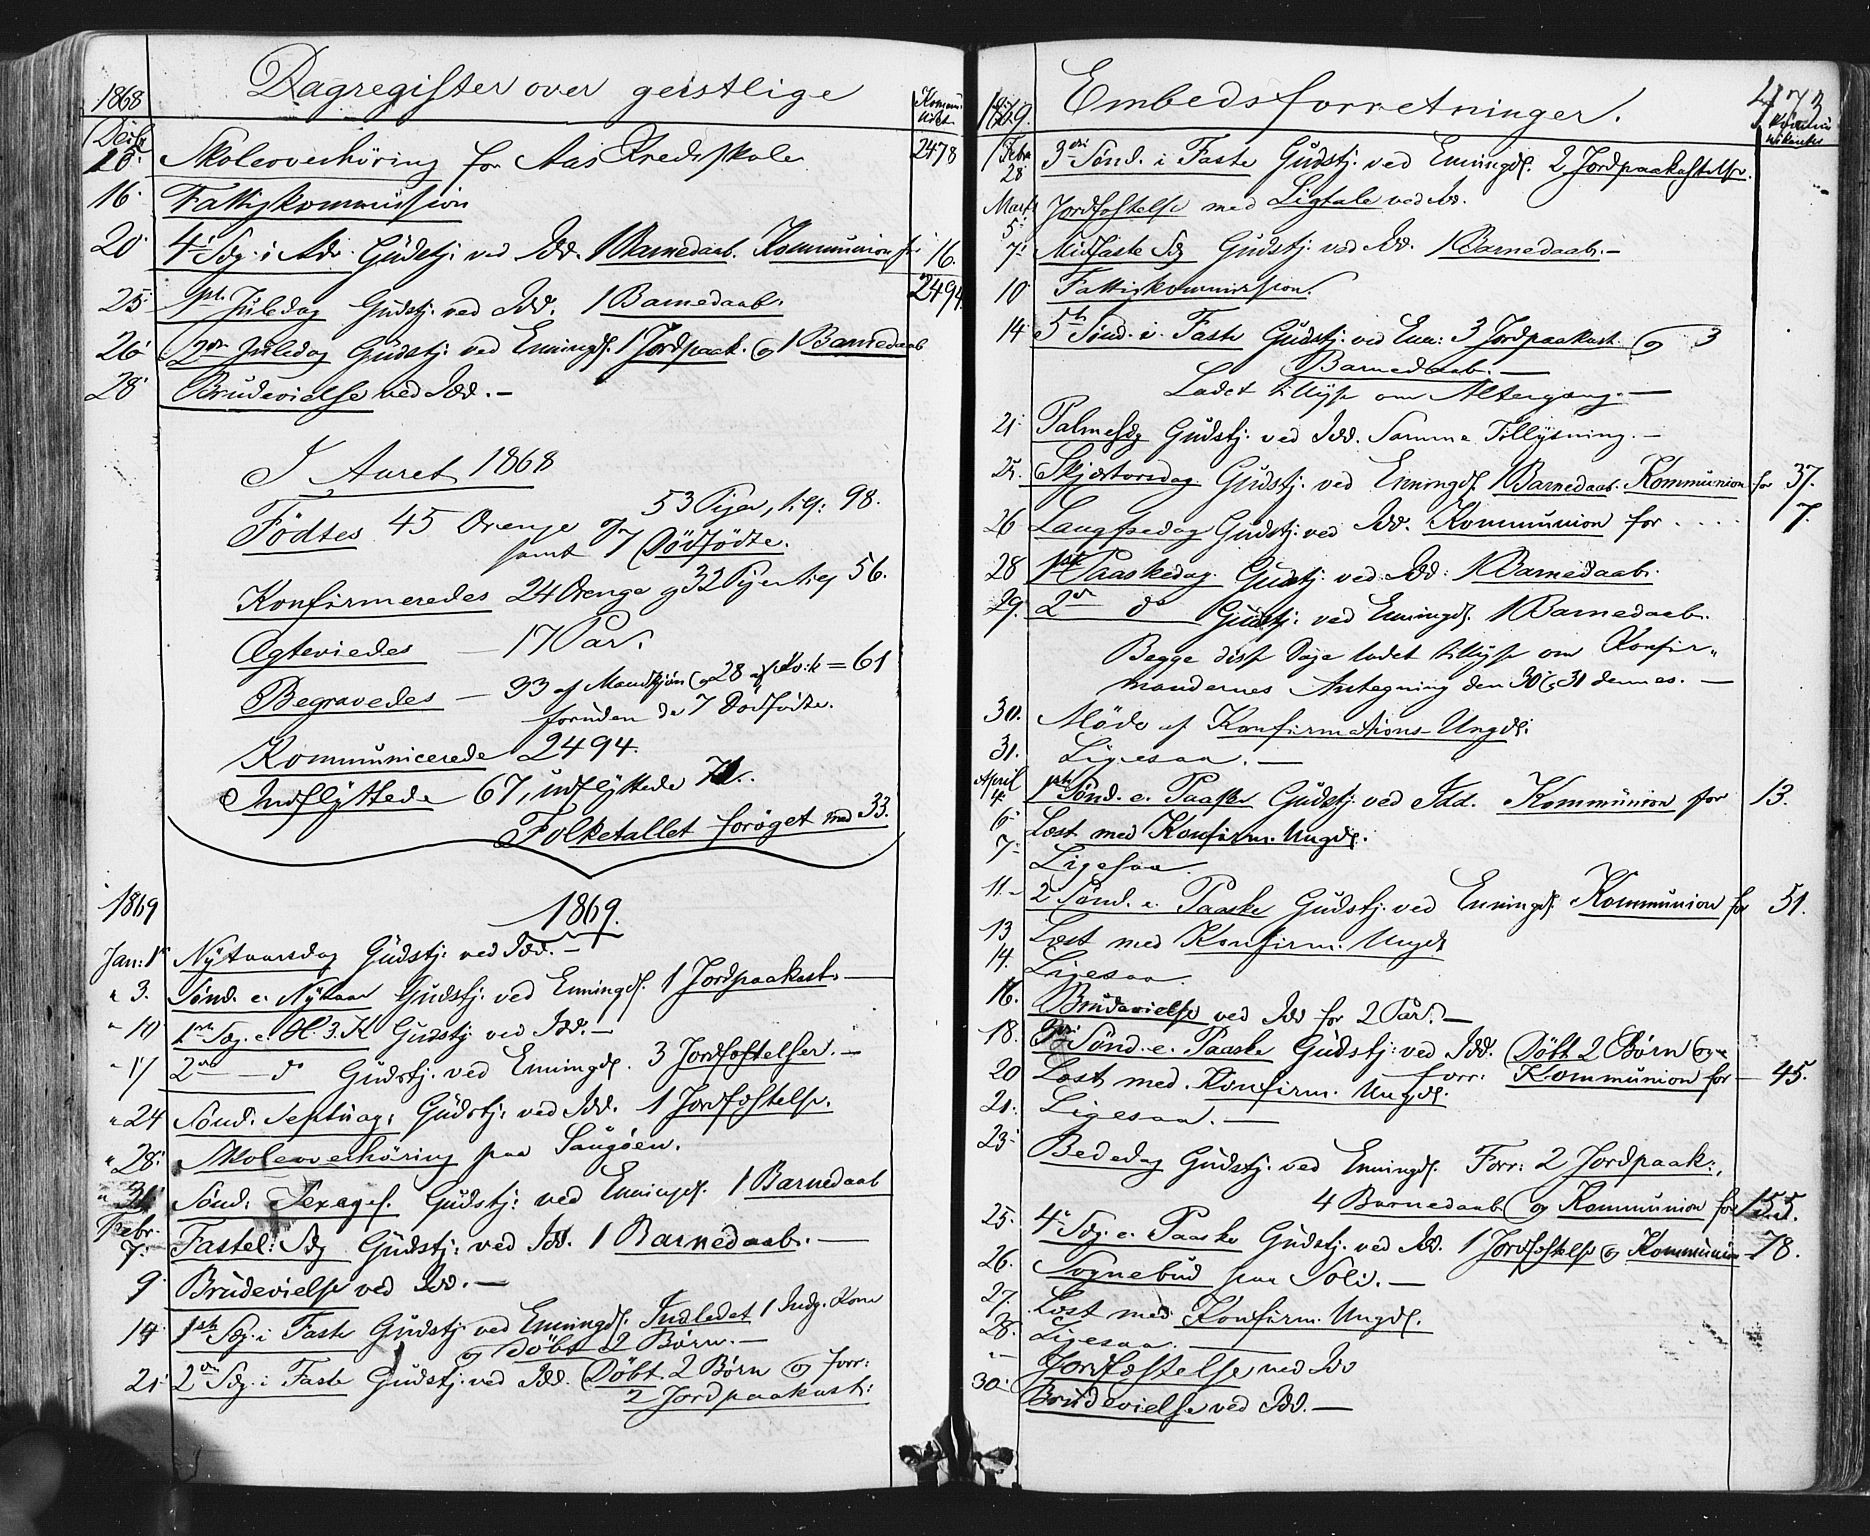 1868 Dagregister over geistlige Kommunikt.
Decbr
10. Skoleoverhöring for Aas Kredsskole 2478
16. Fattigkommission
20. 4. Sdg. i Adv. Gudstj. ved Idd. 1 Barnedaab. Kommunion for 16.
2494
25. 1ste Juledag Gudstj. ved Idd. 1 Barnedaab.
26. 2den Juledag Gudstj. ved Enningd. 1 Jordpaak. og 1 Barnedaab
28. Brudevielse ved Idd. —
I Aaret 1868
Födtes 45 Drenge og 53 Piger, tilS: 98.
samt 7 Dödfödte.
Konfirmeredes 24 Drenge og 32 Piger tilS 56.
Ægteviedes — 17 Par.
Begravedes — 33 af Mandkjön og 28 af Kv:k = 61
foruden de 7 Dödfödte.
Kommunicerede 2494.
Indflyttede 67, udflyttede 71.
Folketallet foröget med 33.
1869 1869.
Jan: 1. Nytaarsdag Gudstj. ved Idd. —
" 3. Sönd. e. Nytaar Gudstj. ved Enningd. 1 Jordpaakast. —
" 10 1ste Sdg. e. H. 3. K. Gudstj. ved Idd. —
" 17 2den — do Gudstj. ved Enningd. 3 Jordfæstelser. —
" 24 Sönd. Septuag. Gudstj. ved Idd. 1 Jordfæstelse.
" 28. Skoleoverhöring paa Saugöen.
" 31. Sönd. Sexages. Gudstj. ved Enningd. 1 Barnedaab
Febr.
7. Fastel: Sdg Gudstj. ved Idd. 1 Barnedaab. —
9. Brudevielse ved Idd. —
14. 1ste Sdg. i Faste Gudstj. ved Enningd. Indledet 1 Indg. Kone
og Döbt 2 Börn. —
21. 2den Sdg. i Faste Gudstj. ved Idd. Döbt 2 Börn og forr:
2 Jordpaakast:
1869. Embedsforretninger. 473
Kommunikanter
Febr.
28 3die Sönd. i Faste Gudstj. ved Enningd. 2 Jordpaakastelse.
Marts
5. Jordfæstelse med Ligtale ved Idd.
7. Midfaste Sdg Gudstj. ved Idd. 1 Barnedaab. —
10 Fattigkommission.
14. 5te Sönd. i Faste Gudstj. ved Enn: 3 Jordpaakast. og 3
Barnedaab. —
Ladet tillyse om Altergang. —
21. Palmesdg Gudstj. ved Idd. Samme Tillysning. —
25. Skjærtorsdag Gudstj. ved Enningd. 1 Barnedaab. Kommunion for 37.
26 Langfredag Gudstj. ved Idd. Kommunion for . . . . 7.
28 1ste Paaskedag. Gudstj. ved Idd: 1 Barnedaab.
29. 2den do Gudstj. ved Enningd. 1 Barnedaab.
Begge disse Dage ladet tillyse om Konfir-
mandernes Antegning den 30 og 31 dennes. —
30. Möde af Konfirmations-Ungd.
31. Ligesaa. —
April
4. 1ste Sönd. e. Paaske Gudstj. ved Idd. Kommunion for 13.
6. Læst med Konfirm. Ungd.
7. Ligesaa.
11. 2 Sönd. e. Paaske Gudstj. ved Enningd. Kommunion for 51.
13 Læst med Konfirm. Ungd.
14. Ligesaa.
16. Brudevielse ved Idd for 2 Par. —
18. 3die Sönd. e. Paaske Gudstj. ved Idd. Döbt 2 Börn og
forr: Kommunion for 45.
20 Læst med Konfirm. Ungd.
21. Ligesaa. —
23. Bededag Gudstj. ved Enningd. Forr: 2 Jordpaak:,
4 Barnedaab og Kommunion for 155.
25. 4. Sdg. e. Paaske Gudstj. ved Idd. 1 Jordfæstelse og Kommunion 78.
26. Sognebud paa Soli. —
27. Læst med Konfirm. Ungd.
28. Ligesaa. —
" — Jordfæstelse ved Idd
30. Brudevielse ved Idd. —